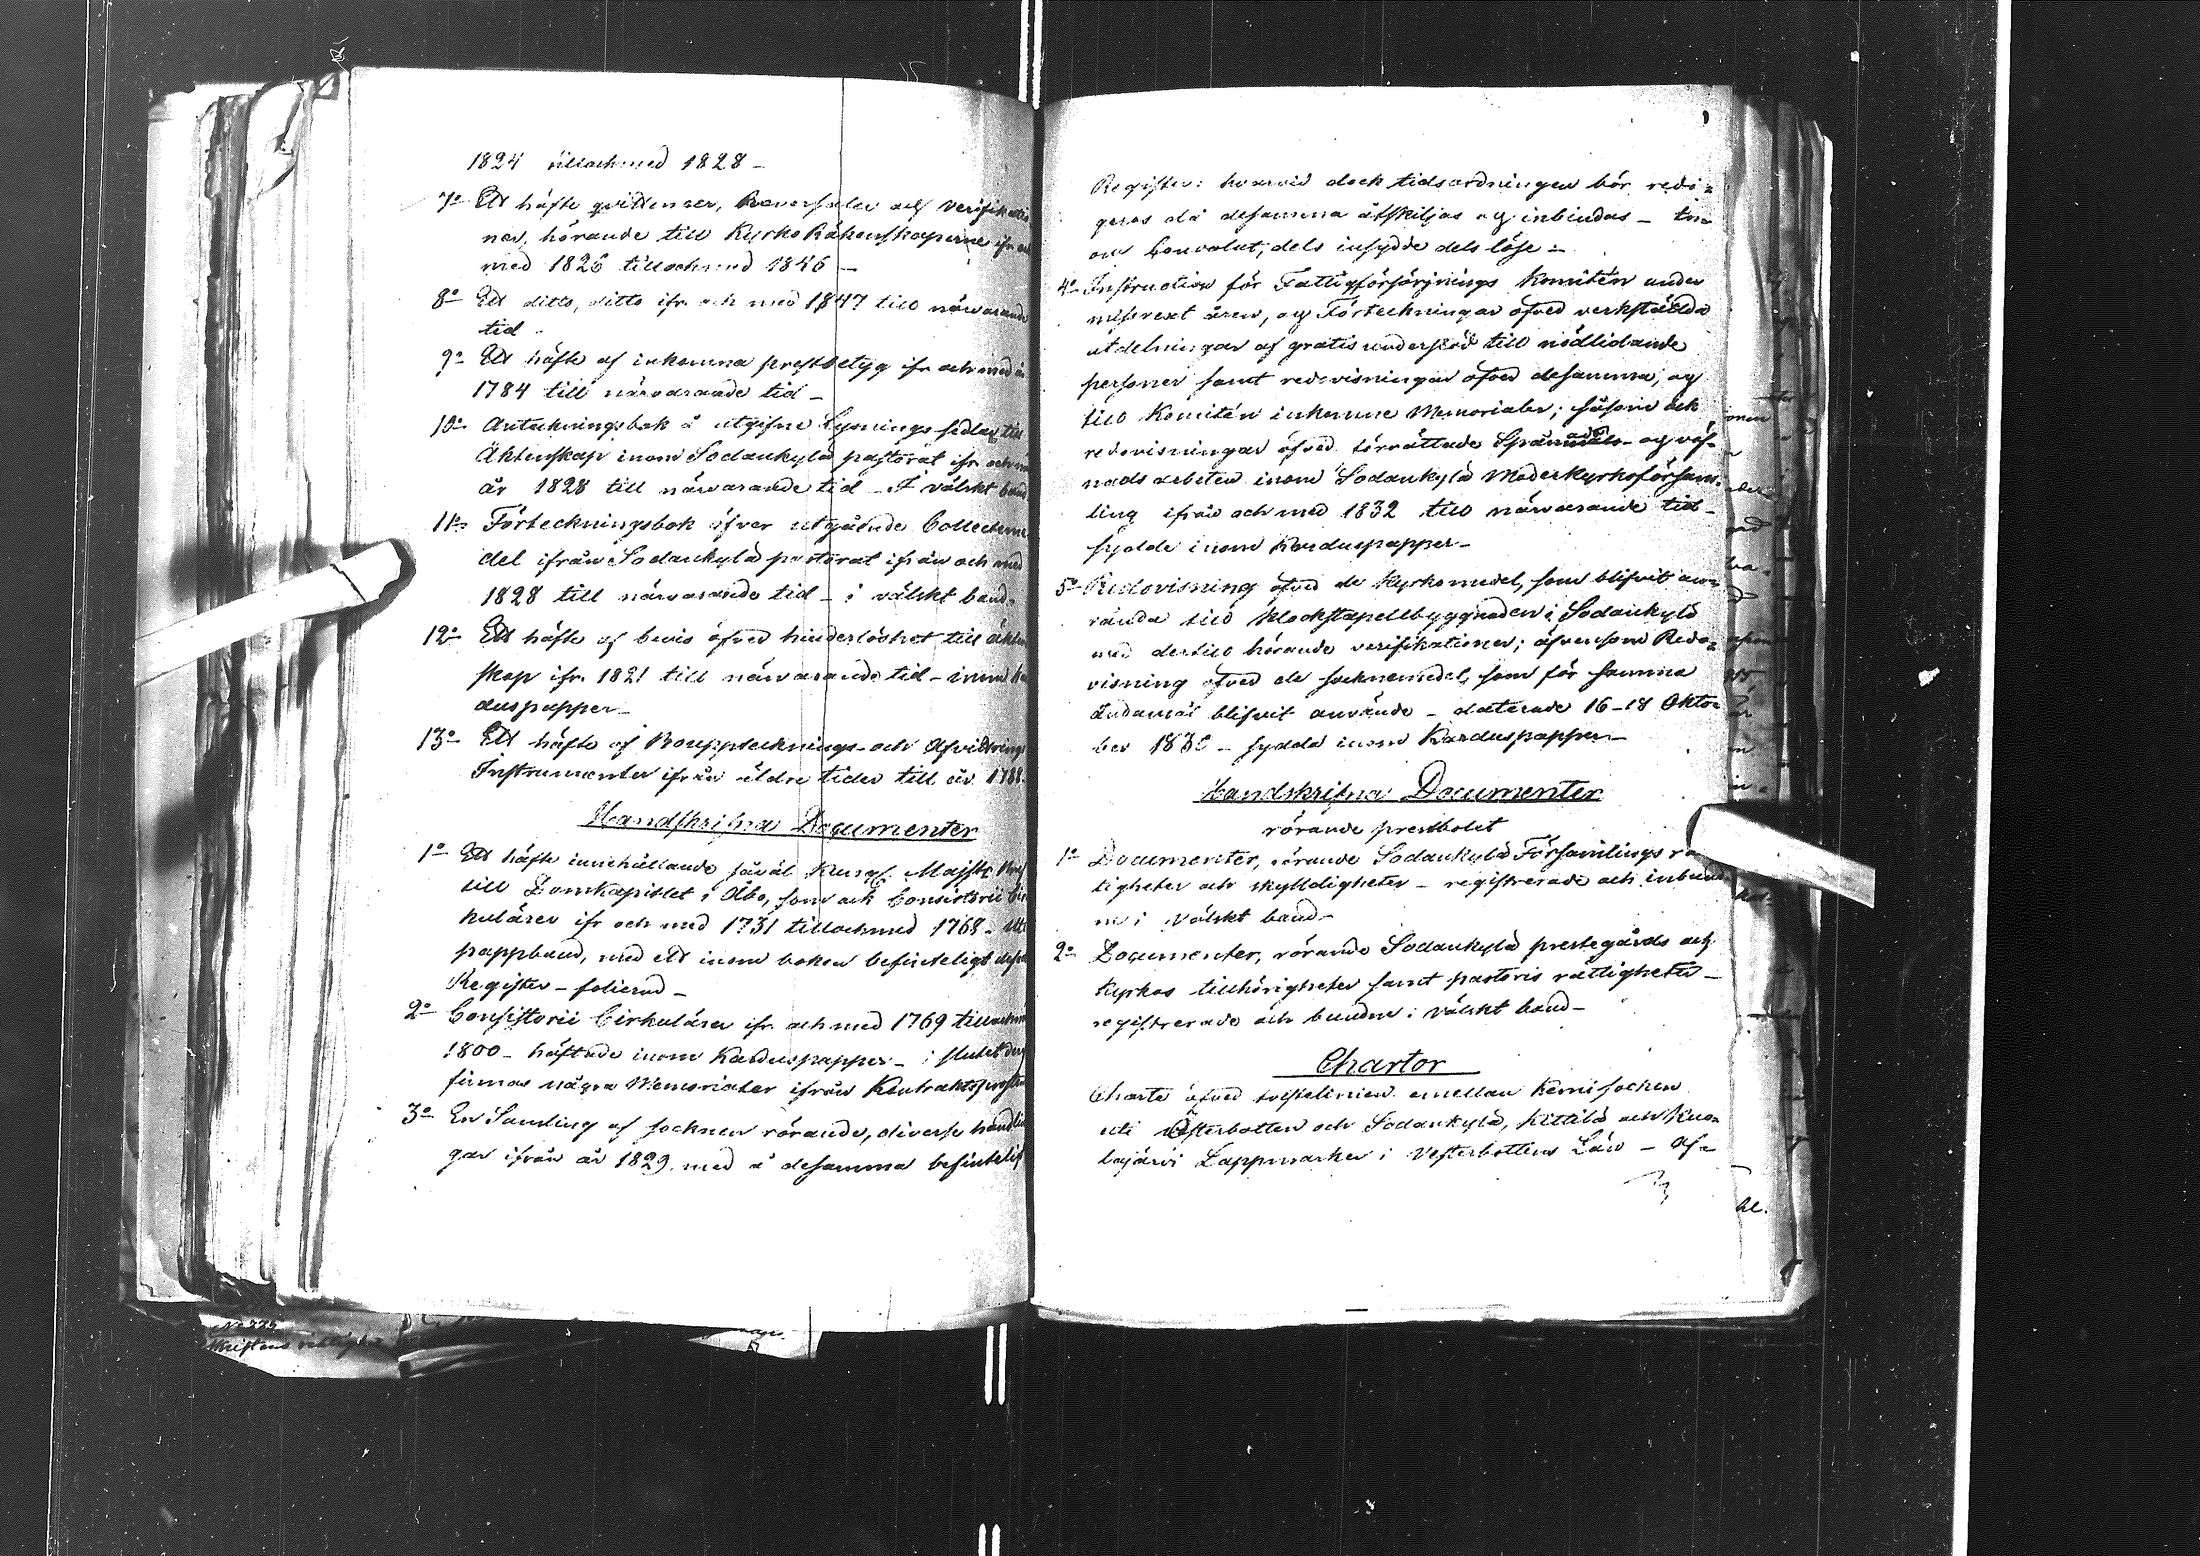 1824 tilloch med 1828 –
7:o Ett häfte qvittenser, Reversaler och verifikatio
ner, hörande till Kyrko Räkenskaperne ifr. och
med 1826 tilloch med 1846 –
8:o Ett ditto, ditto ifr. och med 1847 till närvarande
tid.
9:o Ett häfte af inkomna prestbetyg ifr. och med år
1784 till närvarande tid –
10:o Anteckningsbok å utgifne Lysnings sedlar till
Äktenskap inom Sodankylä pastorat ifr. och med
år 1828 till närvarande tid – I välskt band
11:o Förteckningsbok öfver utgående Collectme
del ifrån Sodankylä pastorat ifrån och med
1828 till närvarande tid – i välskt band.
12:o Ett häfte af bevis öfver hinderlöshet till äkten
skap ifr. 1821 till närvarande tid – inom Kar
duspapper –
13:o Ett häfte af Bouppteknings- och Afvittrings
Instrumenter ifrån äldre tider till år 1788.
Handskrifna Documenter
1:o Ett häfte innehållande såväl Kungl. Majsts Bref
till Domkapitlet i Åbo, som ock Consistorii Cir
kulärer ifr och med 1731 tilloch med 1768 –
pappband, med ett inom boken befinteligt
Register – folierad –
2:o Consistorii Cirkulärer ifr. och med 1769 tilloch med
1800 – häftade inom Karduspapper – i slutet
finnas några Memorialer ifrån Kontraktsprosten
3:o En Samling af socknen rörande, diverse handlin
gar ifrån år 1829 med å desamma befintelig
Register: hvarvid dock tidsordningen bör redi=
geras då desamma åtskiljas och inbindas –
om Convolut, dels insydde dels löse –
4:o Instruction för Fattigförsörjnings Komitén under
missvext åren, och Förteckningar öfver verkställda
utdelningar af gratis understöd till nödlidande
personer samt redovisningar öfver desamma, och
till Komitén inkomne Memorialer; såsom ock
redovisningar öfver förrättade Spånads- och väf-
nads arbeten inom Sodankylä Moderkyrkoförsam-
ling ifrån och med 1832 till närvarande tid –
sydde inom Karduspapper –
5:o Redovisning öfver de Kyrkomedel, som blifvit an=
vända till Klockstapellbyggnaden i Sodankylä
med dertill hörande verifikationer; äfvensom Redo=
visning öfver de socknemedel, som för samma
ändamål blifvit använde – daterade 16–18 Okto
ber – sydda inom Karduspapper –
Handskrifna Documenter
rörande prestbolet
1:o Documenter, rörande Sodankylä Församlings rä
tigheter och skylldigheter – registrerade och inbund
ne i välskt band –
2:o Documenter, rörande Sodankylä prestegårds och
Kyrkas tillhörigheter samt pastoris rättigheter –
registrerade och bundne i välskt band –
Chartor
Charta öfver tvistelinien emellan Kemi socken
uti Österbotten och Sodankylä, Kittilä och Kuo=
lajärvi Lappmarker i Vesterbottens Län – Af=